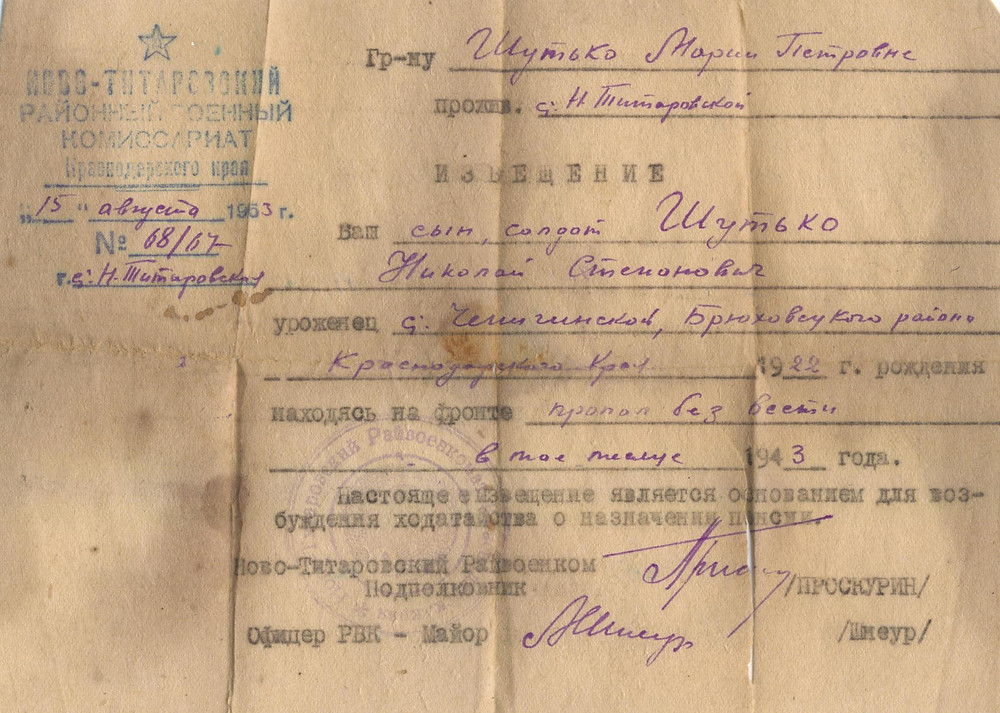 НОВО-ТИТАРОВСКИЙ
РАЙОННЫЙ ВОЕННЫЙ
КОМИССАРИАТ
Краснодарского края
"15" августа 1953 г.
№ 68/67
г. с: Н. Титаровская
Гр-ну Шутько Марии Петровне
прожив. с: Н Титаровской
ИЗВЕЩЕНИЕ
Ваш сын, солдат Шутько
Николай Степанович
уроженец с: Чепигинской, Брюховецкого района
Краснодарского Края 1922 г. рождения
находясь на фронте пропал без вести
в мае месяце 1943 года.
Настоящее Извещение является основанием для воз-
буждения ходатайства о назначении пенсии.
Ново-Титаровский Райвоенком
Подполковник /ПРОСКУРИН/
Офицер РВК - Майор /Шмеур/